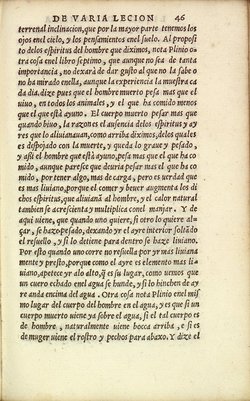 DE VARIA LECION 46
terrenal inclinacion, que por la mayor parte tenemos los
ojos enel cielo, y los pensamientos enel suelo. Al propo
sito delos espiritus del hombre que diximos, nota Plinio o
tra cosa enel libro septimo, que aunque no sea de tanta
importancia, no dexarà de dar gusto al que no la sabe o
no ha mirado enella, aunque la experiencia la muestra ca
da dia. dize pues que el hombre muerto pesa mas que el
uiuo, en todos los animales, y el que ha comido menos
que el que està ayuno. El cuerpo muerto pesar mas que
quando biuo, la razones el ausencia delos espiritus y ay
res que lo aliuianauan, como arriba diximos, delos quales
es despojado con la muerte, y queda lo graue y pesado,
y assi el hombre que està ayuno, pesa mas que el que ha co
mido, aunque paresce que deuria pesar mas el que ha co
mido, por tener algo, mas de carga, pero es uerdad que
es mas liuiano, porque el comer y beuer augmenta los di
chos espiritus, que aliuianã al hombre, y el calor natural
tambien se acrescienta y multiplica conel manjar. Y de
aqui uiene, que quando uno quiere, si otro lo quiere al-
çar, se haze pesado, dexando yr el ayre interior soltãdo
el resuello, y si lo detiene para dentro se haze liuiano.
Por esto quando uno corre no resuella por yr mas liuiana
mente y presto, porque como el ayre es elemento mas li-
uiano, apetece yr alo alto, q̃ es su lugar, como uemos que
un cuero echado enel agua se hunde, y si lo hinchen de ay
re anda encima del agua. Otra cosa nota Plinio enel mis
mo lugar del cuerpo del hombre en el agua, y es que si un
cuerpo muerto uiene ya sobre el agua, si el tal cuerpo es
de hombre, naturalmente uiene bocca arriba, e si es
de muger uiene el rostro y pechos para abaxo. Y dize el